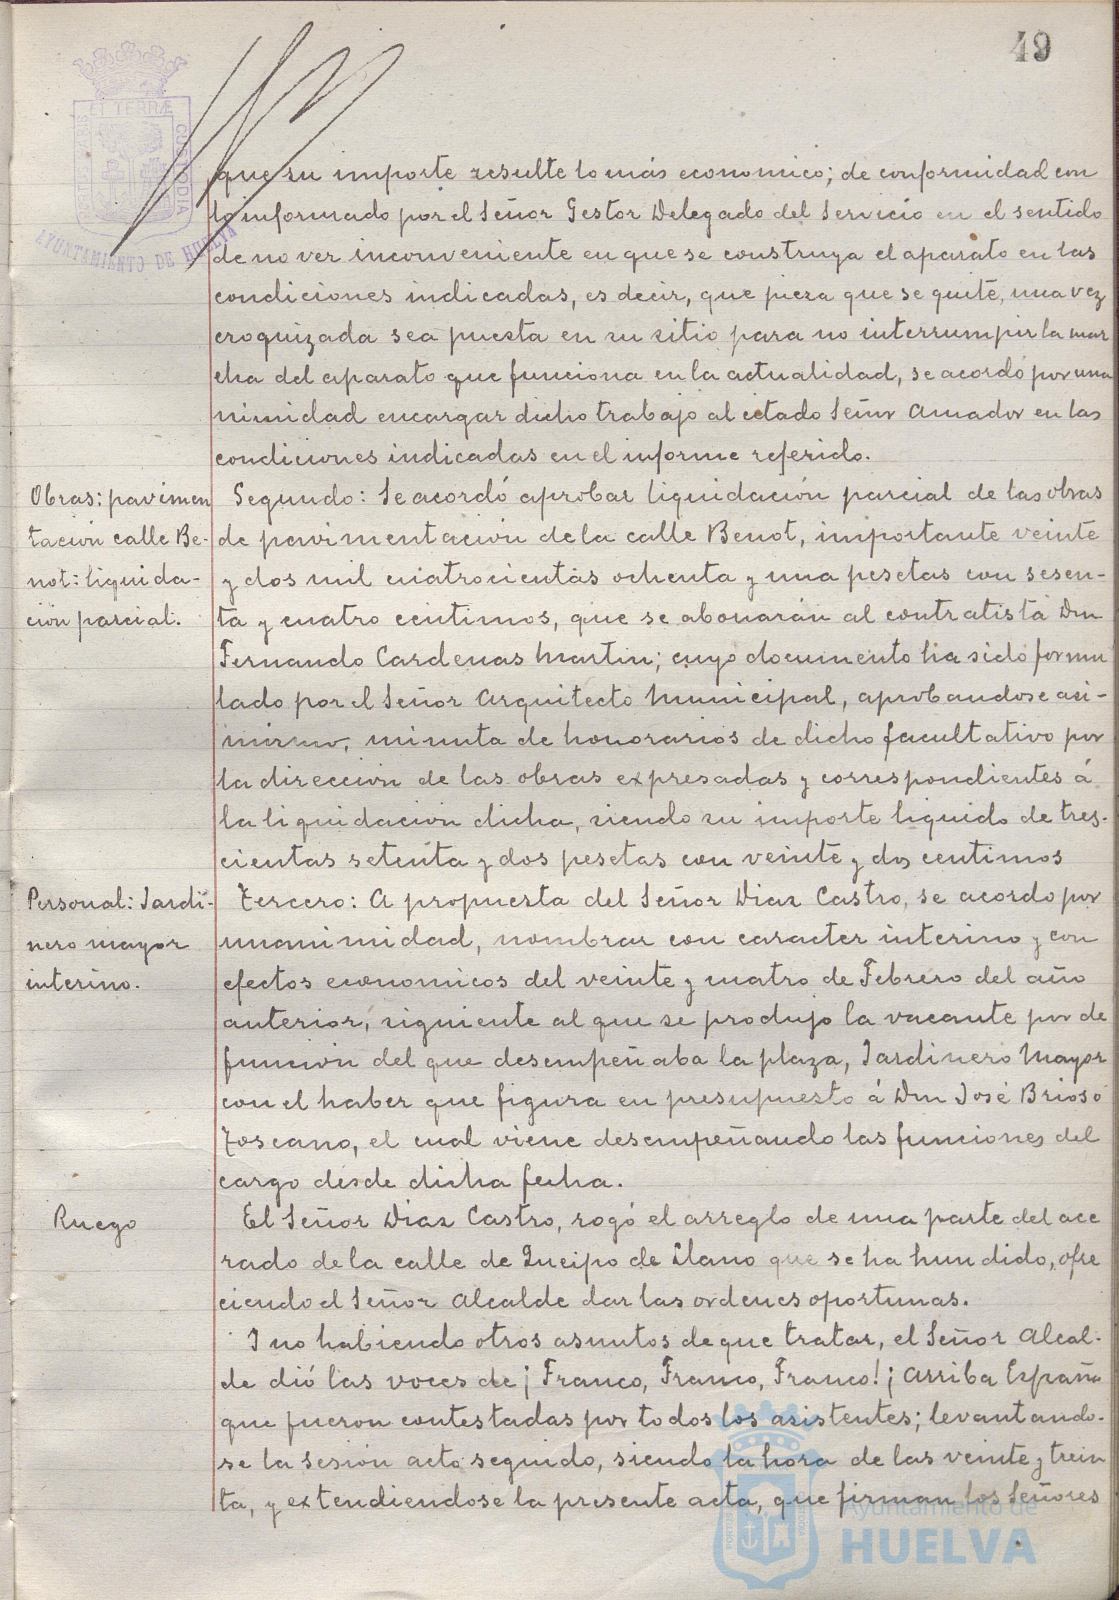 49
ET TERRÆ
CUSTODIA
AYUNTAMIENTO DE HUELVA
que su importe resulte lo más economico; de conformidad con
lo informado por el Señor Gestor Delegado del Servicio en el sentido
de no ver inconveniente en que se construya el aparato en las
condiciones indicadas, es decir, que pieza que se quite, una vez
croquizada sea puesta en su sitio para no interrumpir la mar
cha del aparato que funciona en la actualidad, se acordó por una
nimidad encargar dicho trabajo al citado Señor Amador en las
condiciones indicadas en el informe referido.
Obras: pavimen
tación calle Be-
not: liquida-
ción parcial.
Segundo: Se acordó aprobar liquidación parcial de las obras
de pavimentación de la calle Benot, importante veinte
y dos mil cuatrocientas ochenta y una pesetas con sesen-
ta y cuatro centimos, que se abonarán al contratista Don
Fernando Cardenas Martin; cuyo documento ha sido formu
lado por el Señor Arquitecto Municipal, aprobandose asi-
mismo, minuta de honorarios de dicho facultativo por
la dirección de las obras expresadas y correspondientes á
la liquidación dicha, siendo su importe liquido de tres-
cientas setenta y dos pesetas con veinte y dos centimos
Personal: Jardi-
nero mayor
interino.
Tercero: A propuesta del Señor Diaz Castro, se acordo por
unanimidad, nombrar con caracter interino y con
efectos economicos del veinte y cuatro de Febrero del año
anterior, siguiente al que se produjo la vacante por de
función del que desempeñaba la plaza, Jardinero Mayor
con el haber que figura en presupuesto á Don José Brioso
Toscano, el cual viene desempeñando las funciones del
cargo desde dicha fecha.
Ruego
El Señor Diaz Castro, rogó el arreglo de una parte del ace
rado de la calle de Queipo de Llano que se ha hundido, ofre
ciendo el Señor Alcalde dar las ordenes oportunas.
Y no habiendo otros asuntos de que tratar, el Señor Alcal-
de dió las voces de ¡Franco, Franco, Franco! ¡Arriba España
que fueron contestadas por todos los asistentes; levantando-
se la sesión acto seguido, siendo la hora de las veinte y trein
ta, y extendiendose la presente acta, que firman los Señores
Ayuntamiento de
HUELVA